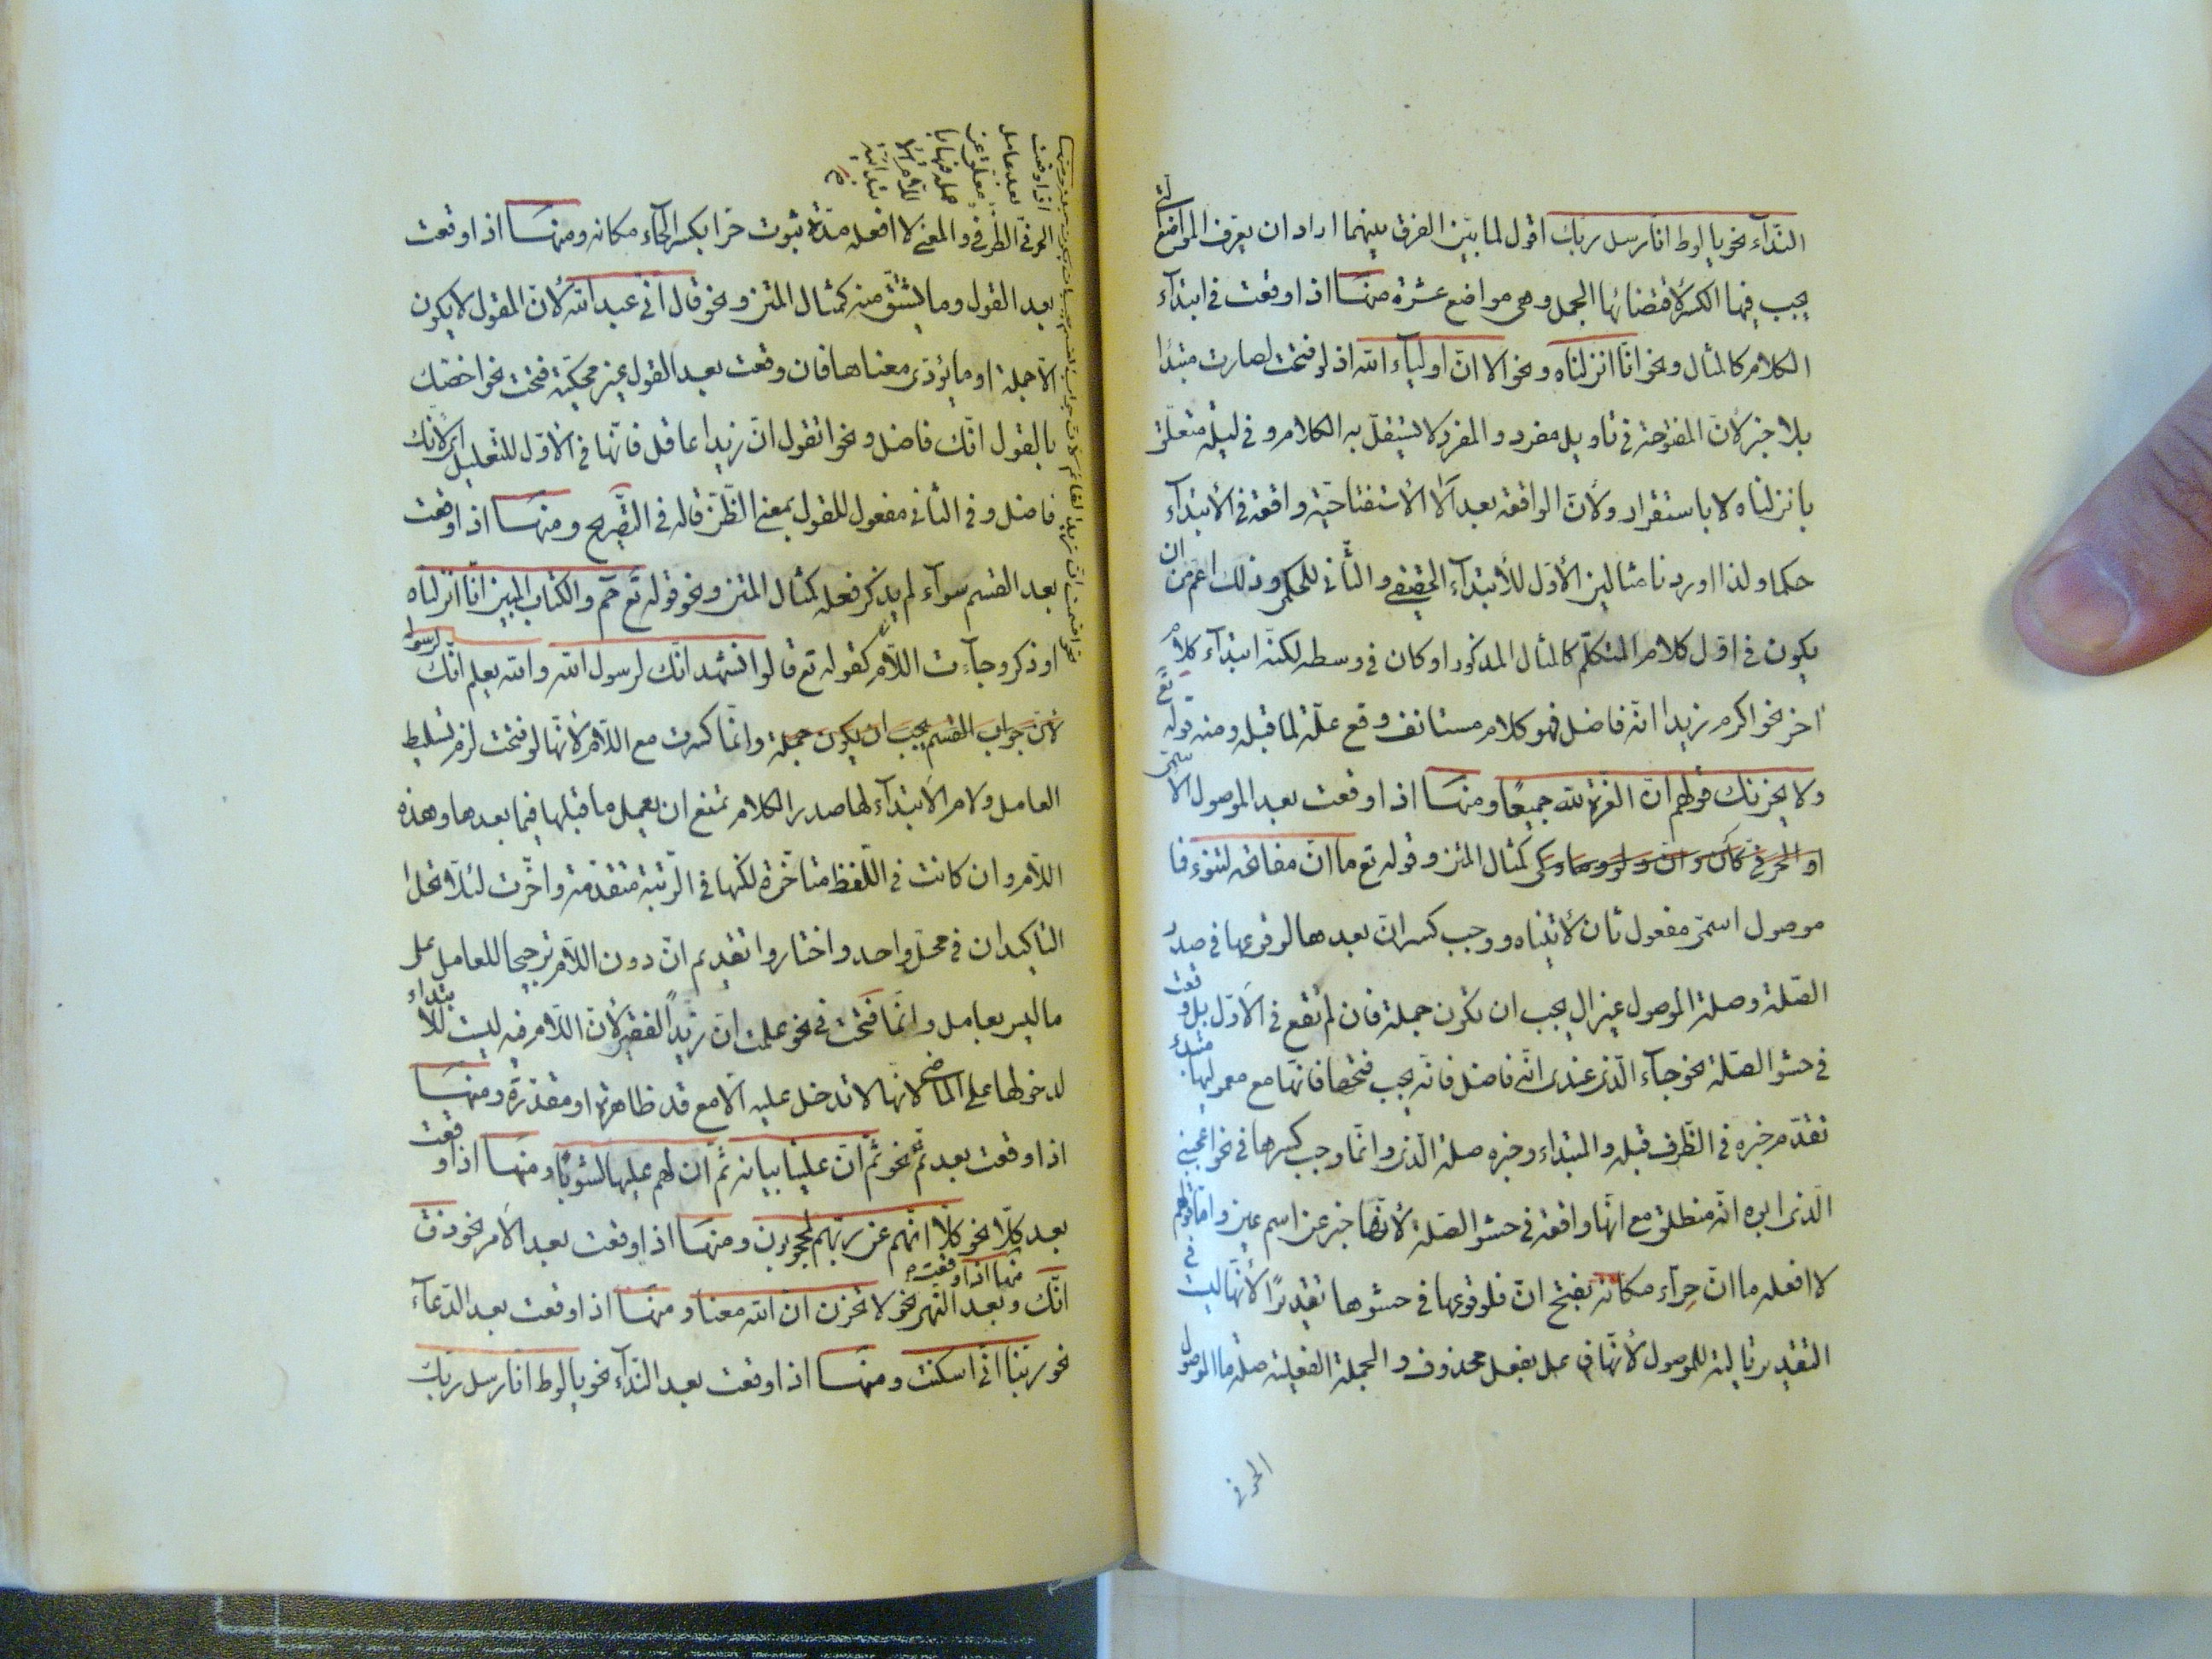 النّدآء نحو يا لوط انّا رسل ربّك اقول لما بيّن الفرق بينهما اراد ان يعرّف المواضع الّتى
يجب فيها الكسر لأقتضائها الجمل وهى مواضع عشرة منها اذا وقعت فى ابتدآء
الكلام كالمثال ونحو انّا انزلناه ونحو الا انّ اوليآء الله اذ لو فتحت لصارت مبتدا
بلا خبر لأنّ المفتوحة فى تأويل مفرد والمفرد لا يستقلّ به الكلام و فى ليلة متعلّق
بانزلناه لا باستقرار ولأنّ الواقعة بعد ألا الأستفتاحيّة واقعة فى الأبتدآء
حكما ولذا اوردنا مثالين الأوّل للأبتدآء الحقيقى والثّانى للحكمى وذلك اعمّ من ان
يكون فى اوّل كلام المتكلّم كالمثال المذكور او كان فى وسطه لكنّه ابتدآء كلام
اخر نحو اكرم زيدا انّه فاضل فهو كلام مستانف وقع علّة لما قبله ومنه قوله تع
ولا يحزنك قولهم انّ العزة لله جميعًا ومنها اذا وقعت بعد الموصول الاسمىّ
او الحرفى كأن وانّ ولو وما وكى كمثال المتن وقوله تع ما انّ مفاتحه لتنوء فما
موصول اسمىّ مفعول ثان لأتيناه ووجب كسر انّ بعدها لوقوعها فى صدر
الصّلة وصلة الموصول غير ال يجب ان تكون جملة فان لم تقع فى الأوّل بل وقعت
فى حشو الصّلة نحو جآء الّذى عندى انّه فاضل فانّه يجب فتحها فانّها مع معموليها مبتدأ
تقدّم خبره فى الظّرف قبله والمبتداء وخبره صلة الّذى وانّما وجب كسرها فى نحو اعجبنى
الّذى ابوه انّه منطلق مع انّها واقعة فى حشو الصّلة لأنّها خبر عن اسم عين وامّا قولهم
لا افعله ما انّ حِرآء مكانه بفتح انّ فلوقوعها فى حشوها تقديرًا لأنّها ليست فى
التقدير تالية للموصول لأنّها فى عمل بفعل محذوف والجملة الفعلية صلة ما الموصول
الحرفى
الحرفى الظّرفى والمعنى لا افعله مدّة ثبوت حرا بكسر الحآء مكانه ومنها اذا وقعت
بعد القول وما يشتقّ منه كمثال المتن ونحو قال انّى عبد الله لأنّ المقول لا يكون
الّا جملة او ما يؤدّى معناها فان وقعت بعد القول غير محكيّة فتحت نحو اخصّك
بالقول انّك فاضل ونحو اتقول انّ زيدا عاقل فانّها فى الأوّل للتّعليل اى لأنّك
فاضل وفى الثّانى مفعول للقول بمعنى الظّنّ قاله فى التّصريح ومنها اذا وقعت
بعد القسم سوآء لم يذكر فعله كمثال المتن ونحو قوله تع حم والكتاب المبين انّا انزلناه
او ذكر وجآءت اللّام كقوله تع قالوا نشهد انّك لرسول الله والله يعلم انّك لرسوله
لأنّ جواب القسم يجب ان يكون جملة وانّما كسرت مع اللّام لأنّها لو فتحت لزم تسليط
العامل ولام الأبتدآء لها صدر الكلام تمنع ان يعمل ما قبلها فيما بعدها وهذه
اللّام وان كانت فى اللّفظ متأخّرة لكنّها فى الرّتبة متقدّمة واخّرت لئلّا تحل
التاكيدان فى محلّ واحد واختاروا تقديم انّ دون اللّام ترجيحا للعامل على
ما ليس بعامل وانّما فتحت فى نحو علمت انّ زيدًا لفقير لأنّ اللّام فيه ليست للأبتداء
لدخولها على الماضى لأنّها لا تدخل عليه الّا مع قد ظاهرة او مقدّرة ومنها
اذا وقعت بعد ثمّ نحو ثمّ انّ علينا بيانه ثمّ ان لهم عليها لشوبًا ومنها اذا وقعت
بعد كلّا نحو كلّا انّهم عن ربّهم لمحجوبون ومنها اذا وقعت بعد الأمر نحو ذق
انّك و منها اذا وقعت بعد النّهى نحو لا تحزن انّ الله معنا ومنها اذا وقعت بعد الدّعآء
نحو ربّنا انّى اسكنت ومنها اذا وقعت بعد النّدآء نحو يا لوط انّا رسل ربّك